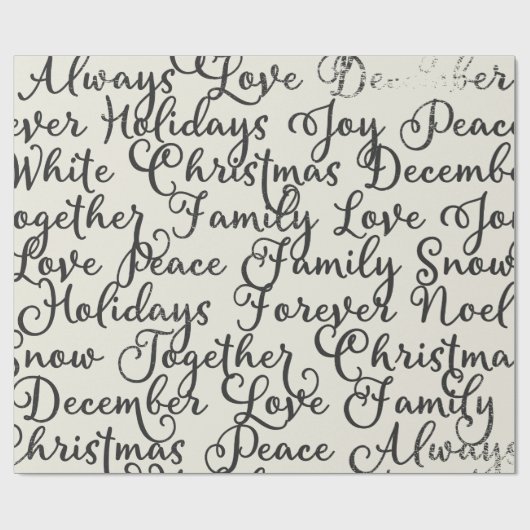 Always Love December
ever Holidays Joy Peace
White Christmas December
ogether Family Love Joy
Love Peace Family Snow
Holidays Forever Noel
Snow Together Christma
December Love Family
Christmas Peace Always